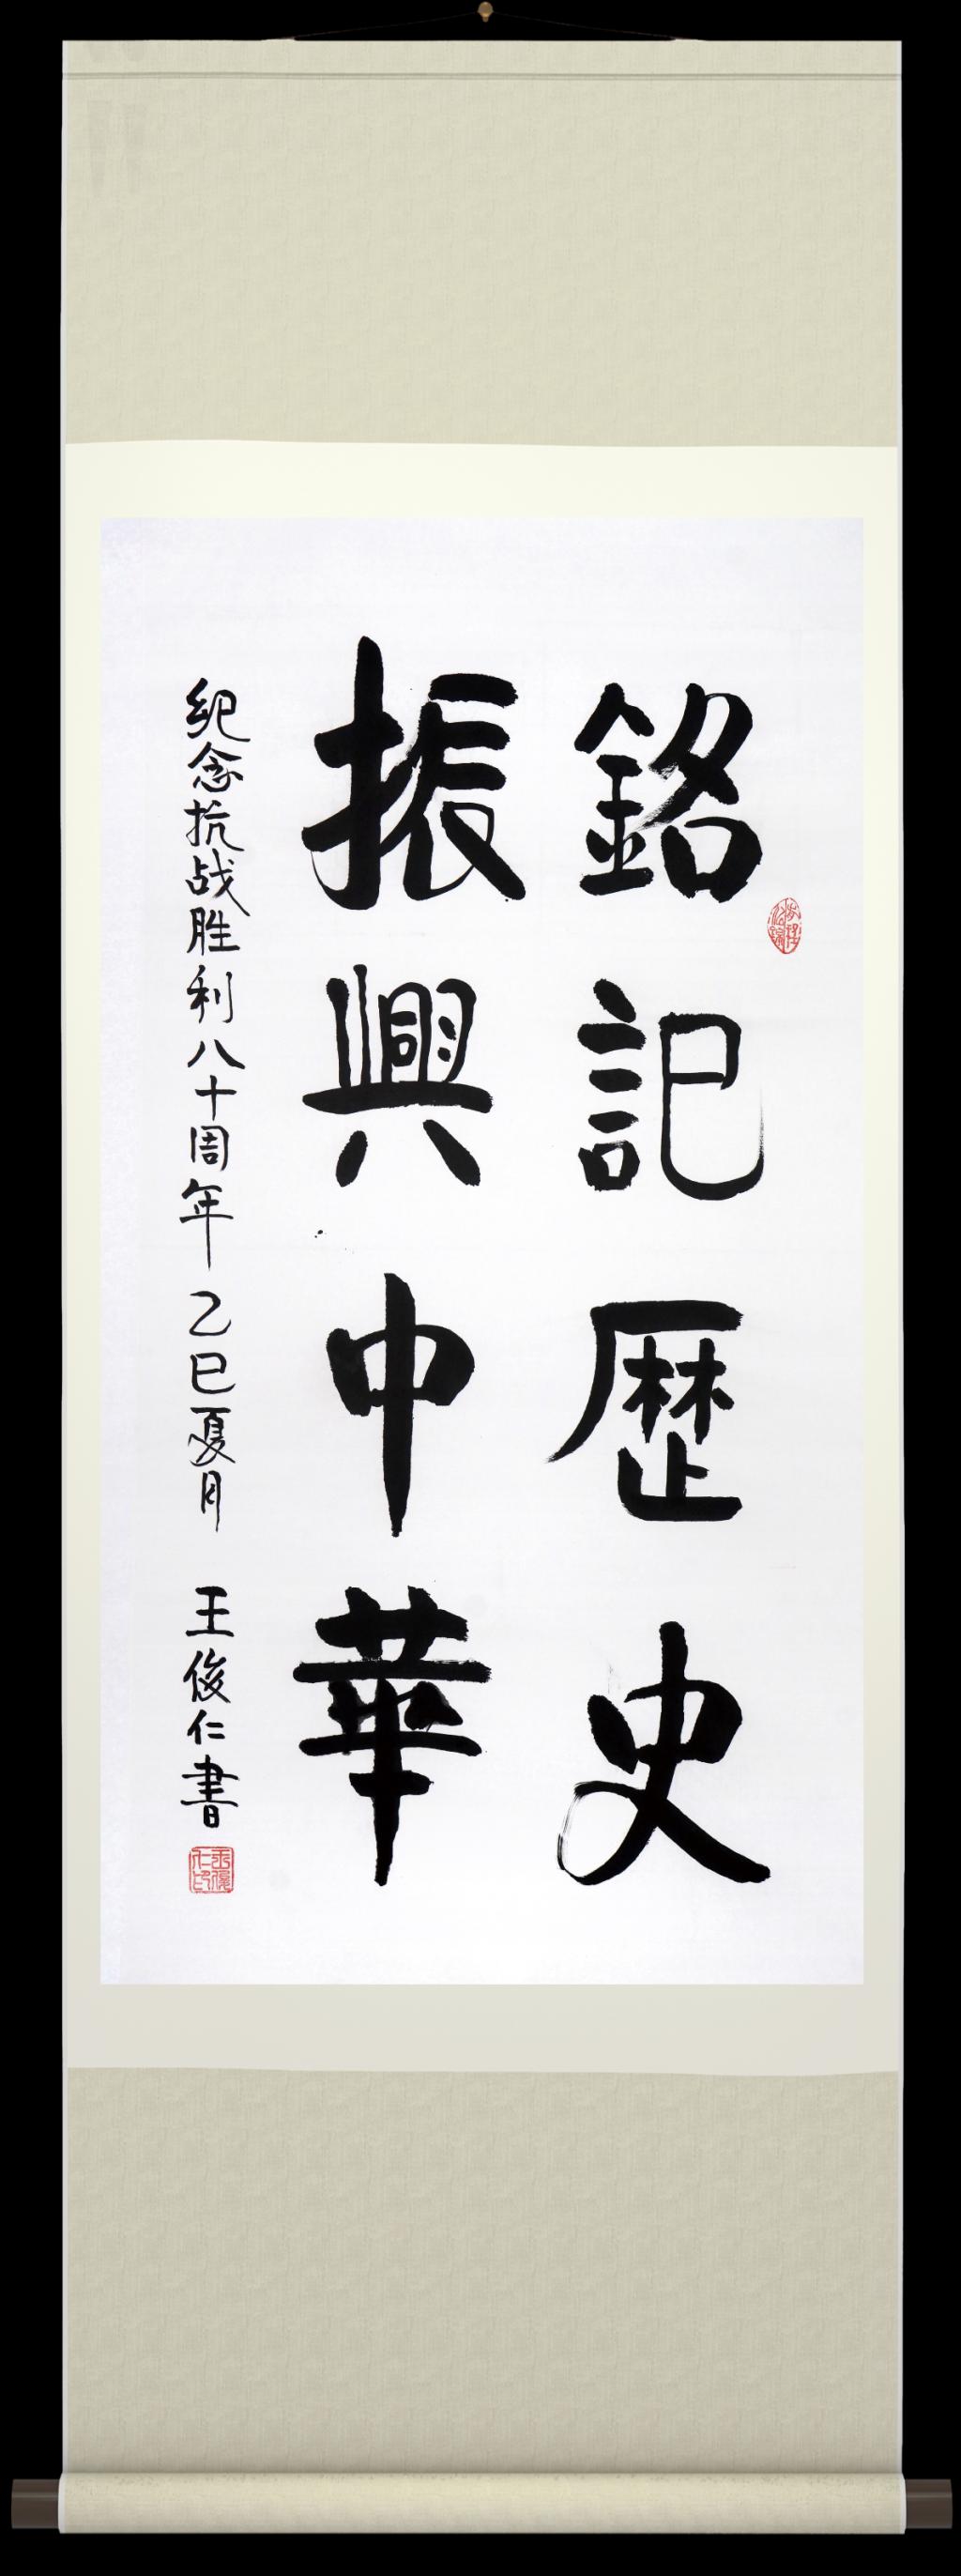 銘記歷史
振興中華
纪念抗战胜利八十周年 乙巳夏月 王俊仁書
王俊仁印